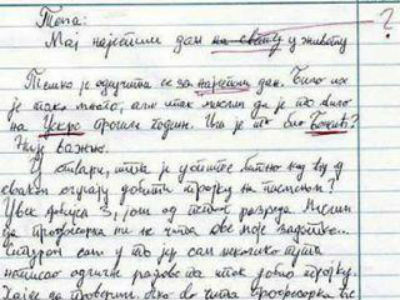 Тема:
Мој најлепши дан на свету у животу ?
Тешко је одлучити се за најлепши дан. Било их
је тако много, али ипак мислим да је то било
на Ускрс прошле године. Или је то био Божић?
Није важно.
У ствари, шта је уопште битно кад ћу у
сваком случају добити тројку на писменом?
Увек добијем 3, још од петог разреда. Мислим
да професорка ни не чита ове моје задатке...
Сигуран сам у то јер сам неколико пута
написао одличне радове па ипак добио тројку.
Хајде да проверим. Ако ово чита професорка